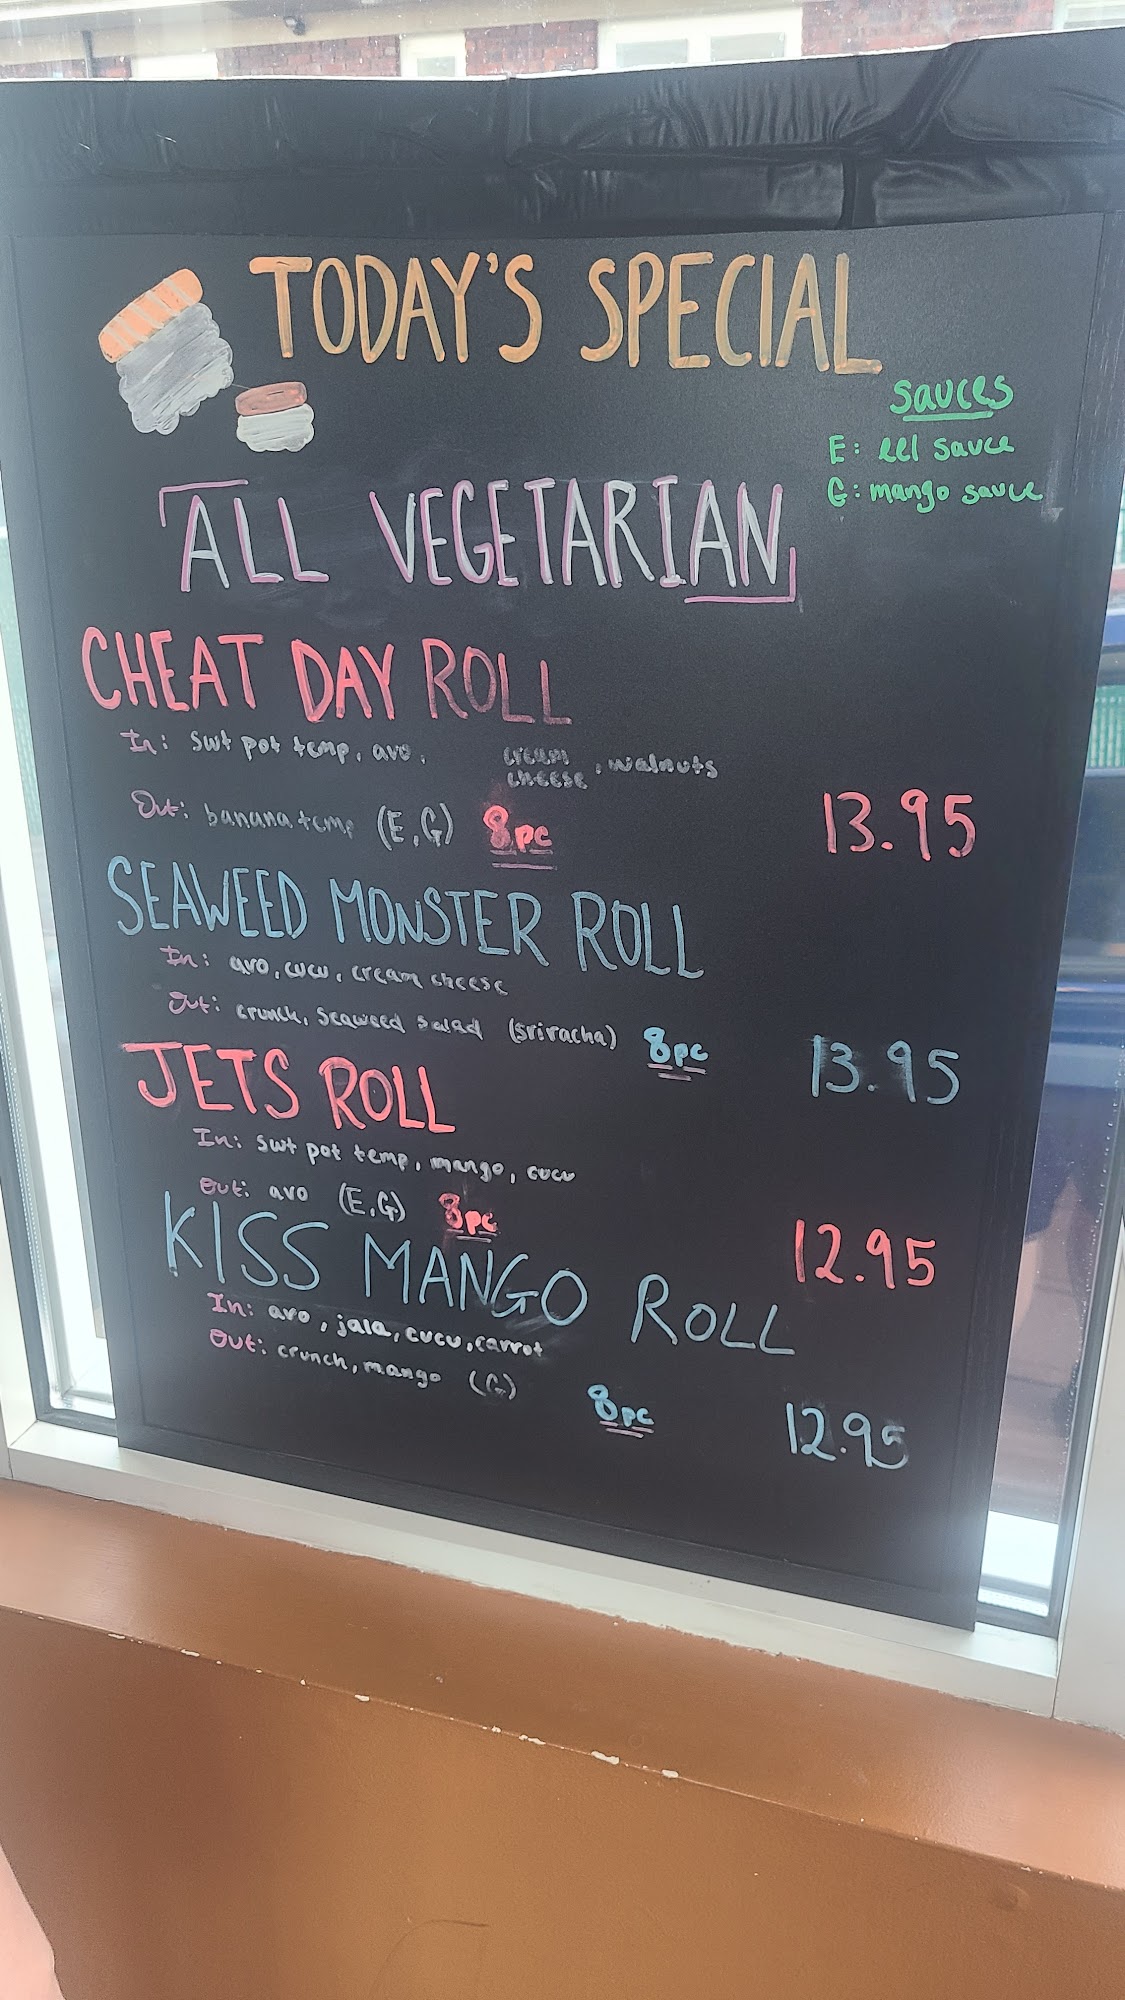 TODAY'S SPECIAL
sauces
E: eel sauce
G: mango sauce
ALL VEGETARIAN
CHEAT DAY ROLL
In: swt pot temp, avo, cream cheese, walnuts
Out: banana temp (E,G) 8pc
13.95
SEAWEED MONSTER ROLL
In: avo, cucu, cream cheese
Out: crunch, seaweed salad (sriracha) 8pc
13.95
JETS ROLL
In: swt pot temp, mango, cucu
Out: avo (E,G) 8pc
12.95
KISS MANGO ROLL
In: avo, jala, cucu, carrot
Out: crunch, mango (G)
8pc
12.95